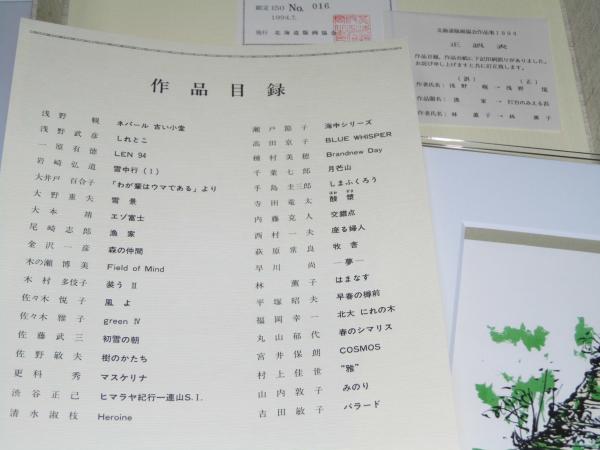 限定150 No. 016
1994.7.
発行 北海道版画協会
北海道版画協会作品集1994
正誤表
作品目録、作品台紙に下記印刷誤りがありました。
お詫び申し上げますと共に訂正致します。
(誤) (正)
作者氏名: 浅野 幌 → 浅野 愰
作品題名: 漁家 → 灯台のみえる浜
作者氏名: 林 薫子 → 林 薫子
作品目録
浅野 幌 ネパール 古い小堂
浅野武彦 しれとこ
一原有徳 LEN 94
岩崎弘道 雪中行(I)
大井戸百合子 「わが輩はウマである」より
大野重夫 雪景
大本靖 エゾ富士
尾崎志郎 漁家
金沢一彦 森の仲間
木の瀬博美 Field of Mind
木村多伎子 装う II
佐々木悦子 風よ
佐々木雅子 green IV
佐藤武三 初雪の朝
佐野敏夫 樹のかたち
更科秀 マスケリナ
渋谷正己 ヒマラヤ紀行一連山S.I.
清水淑枝 Heroine
瀬戸節子 海中シリーズ
高田京子 BLUE WHISPER
種村美穂 Brandnew Day
千葉七郎 月芭山
手島圭三郎 しまふくろう
寺田竜太
内藤克人 交錯点
西村一夫 座る婦人
萩原常良 牧舎
早川尚 ―夢―
林薫子 はまなす
平塚昭夫 早春の樽前
福岡幸一 北大 にれの木
丸山郁代 春のシマリス
宮井保朗 COSMOS
村上佳世 "雅"
山内敦子 みのり
吉田敏子 バラード